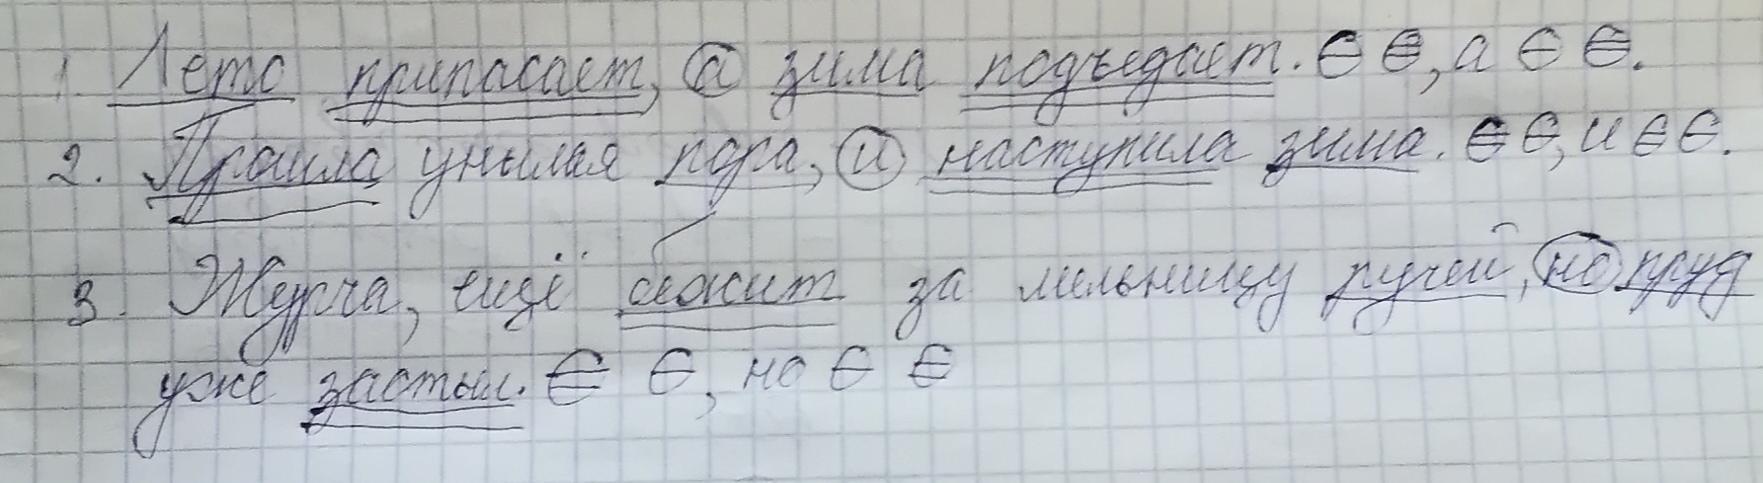 1. Лето припасает, а зима подъедает. Є Є, а Є Є.
2. Прошла унылая пора, и наступила зима. Є Є, и Є Є.
3. Журча, ещё бежит за мельницу ручей, но пруд
уже застыл. Є Є, но Є Є